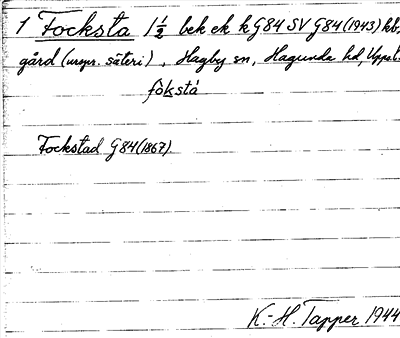 1 Focksta 1 1/2 bek ek k G84 SV G84 (1943) kb,
gård (urspr. säteri), Hagby sn, Hagunda hd, Uppsl.
fòkstá
Fockstad G84 (1867).
K.-H. Tapper 1944